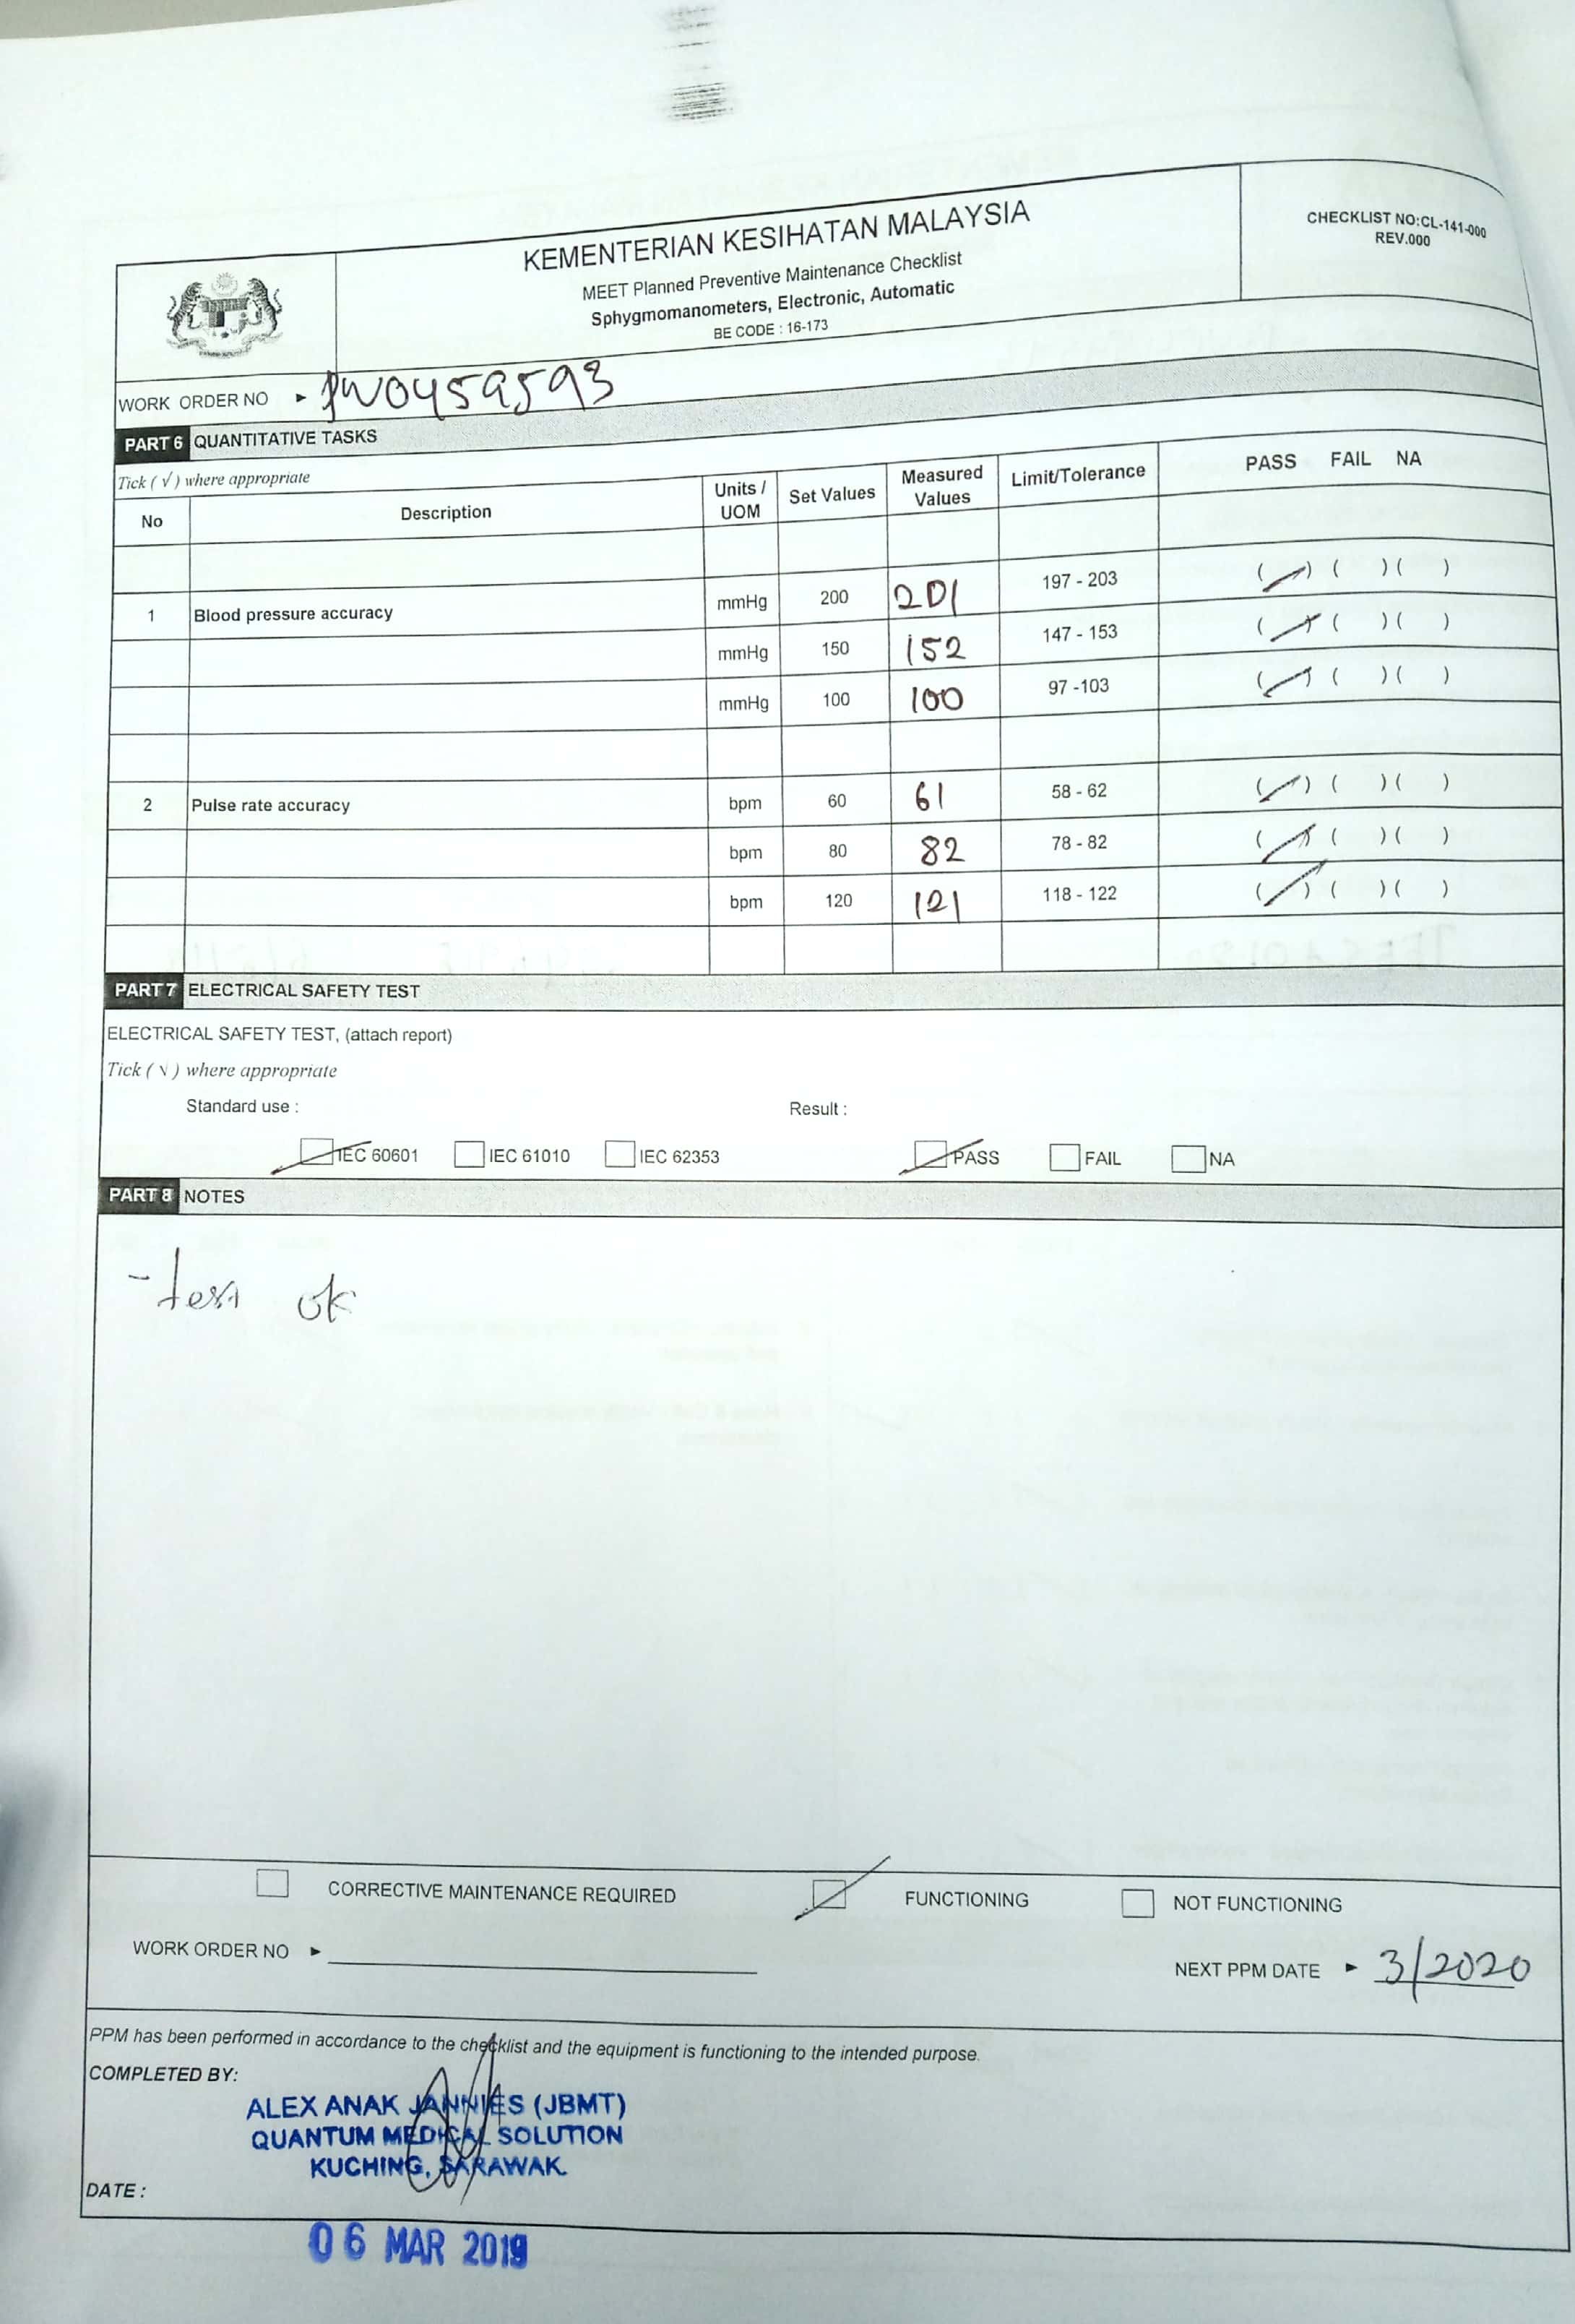 KEMENTERIAN KESIHATAN MALAYSIA
MEET Planned Preventive Maintenance Checklist
Sphygmomanometers, Electronic, Automatic
BE CODE : 16-173
CHECKLIST NO:CL-141-000
REV.000
WORK ORDER NO ► PW0459593
PART 6 QUANTITATIVE TASKS
Tick ( √ ) where appropriate
No Description Units / UOM Set Values Measured Values Limit/Tolerance PASS FAIL NA
1 Blood pressure accuracy mmHg 200 201 197 - 203 ( / ) ( ) ( )
mmHg 150 152 147 - 153 ( / ) ( ) ( )
mmHg 100 100 97 -103 ( / ) ( ) ( )
2 Pulse rate accuracy bpm 60 61 58 - 62 ( / ) ( ) ( )
bpm 80 82 78 - 82 ( / ) ( ) ( )
bpm 120 121 118 - 122 ( / ) ( ) ( )
PART 7 ELECTRICAL SAFETY TEST
ELECTRICAL SAFETY TEST, (attach report)
Tick ( √ ) where appropriate
Standard use : Result :
IEC 60601 IEC 61010 IEC 62353 PASS FAIL NA
PART 8 NOTES
- test ok
CORRECTIVE MAINTENANCE REQUIRED FUNCTIONING NOT FUNCTIONING
WORK ORDER NO ► NEXT PPM DATE ► 3/2020
PPM has been performed in accordance to the checklist and the equipment is functioning to the intended purpose.
COMPLETED BY:
ALEX ANAK JANNIES (JBMT)
QUANTUM MEDICAL SOLUTION
KUCHING, SARAWAK.
DATE :
06 MAR 2019